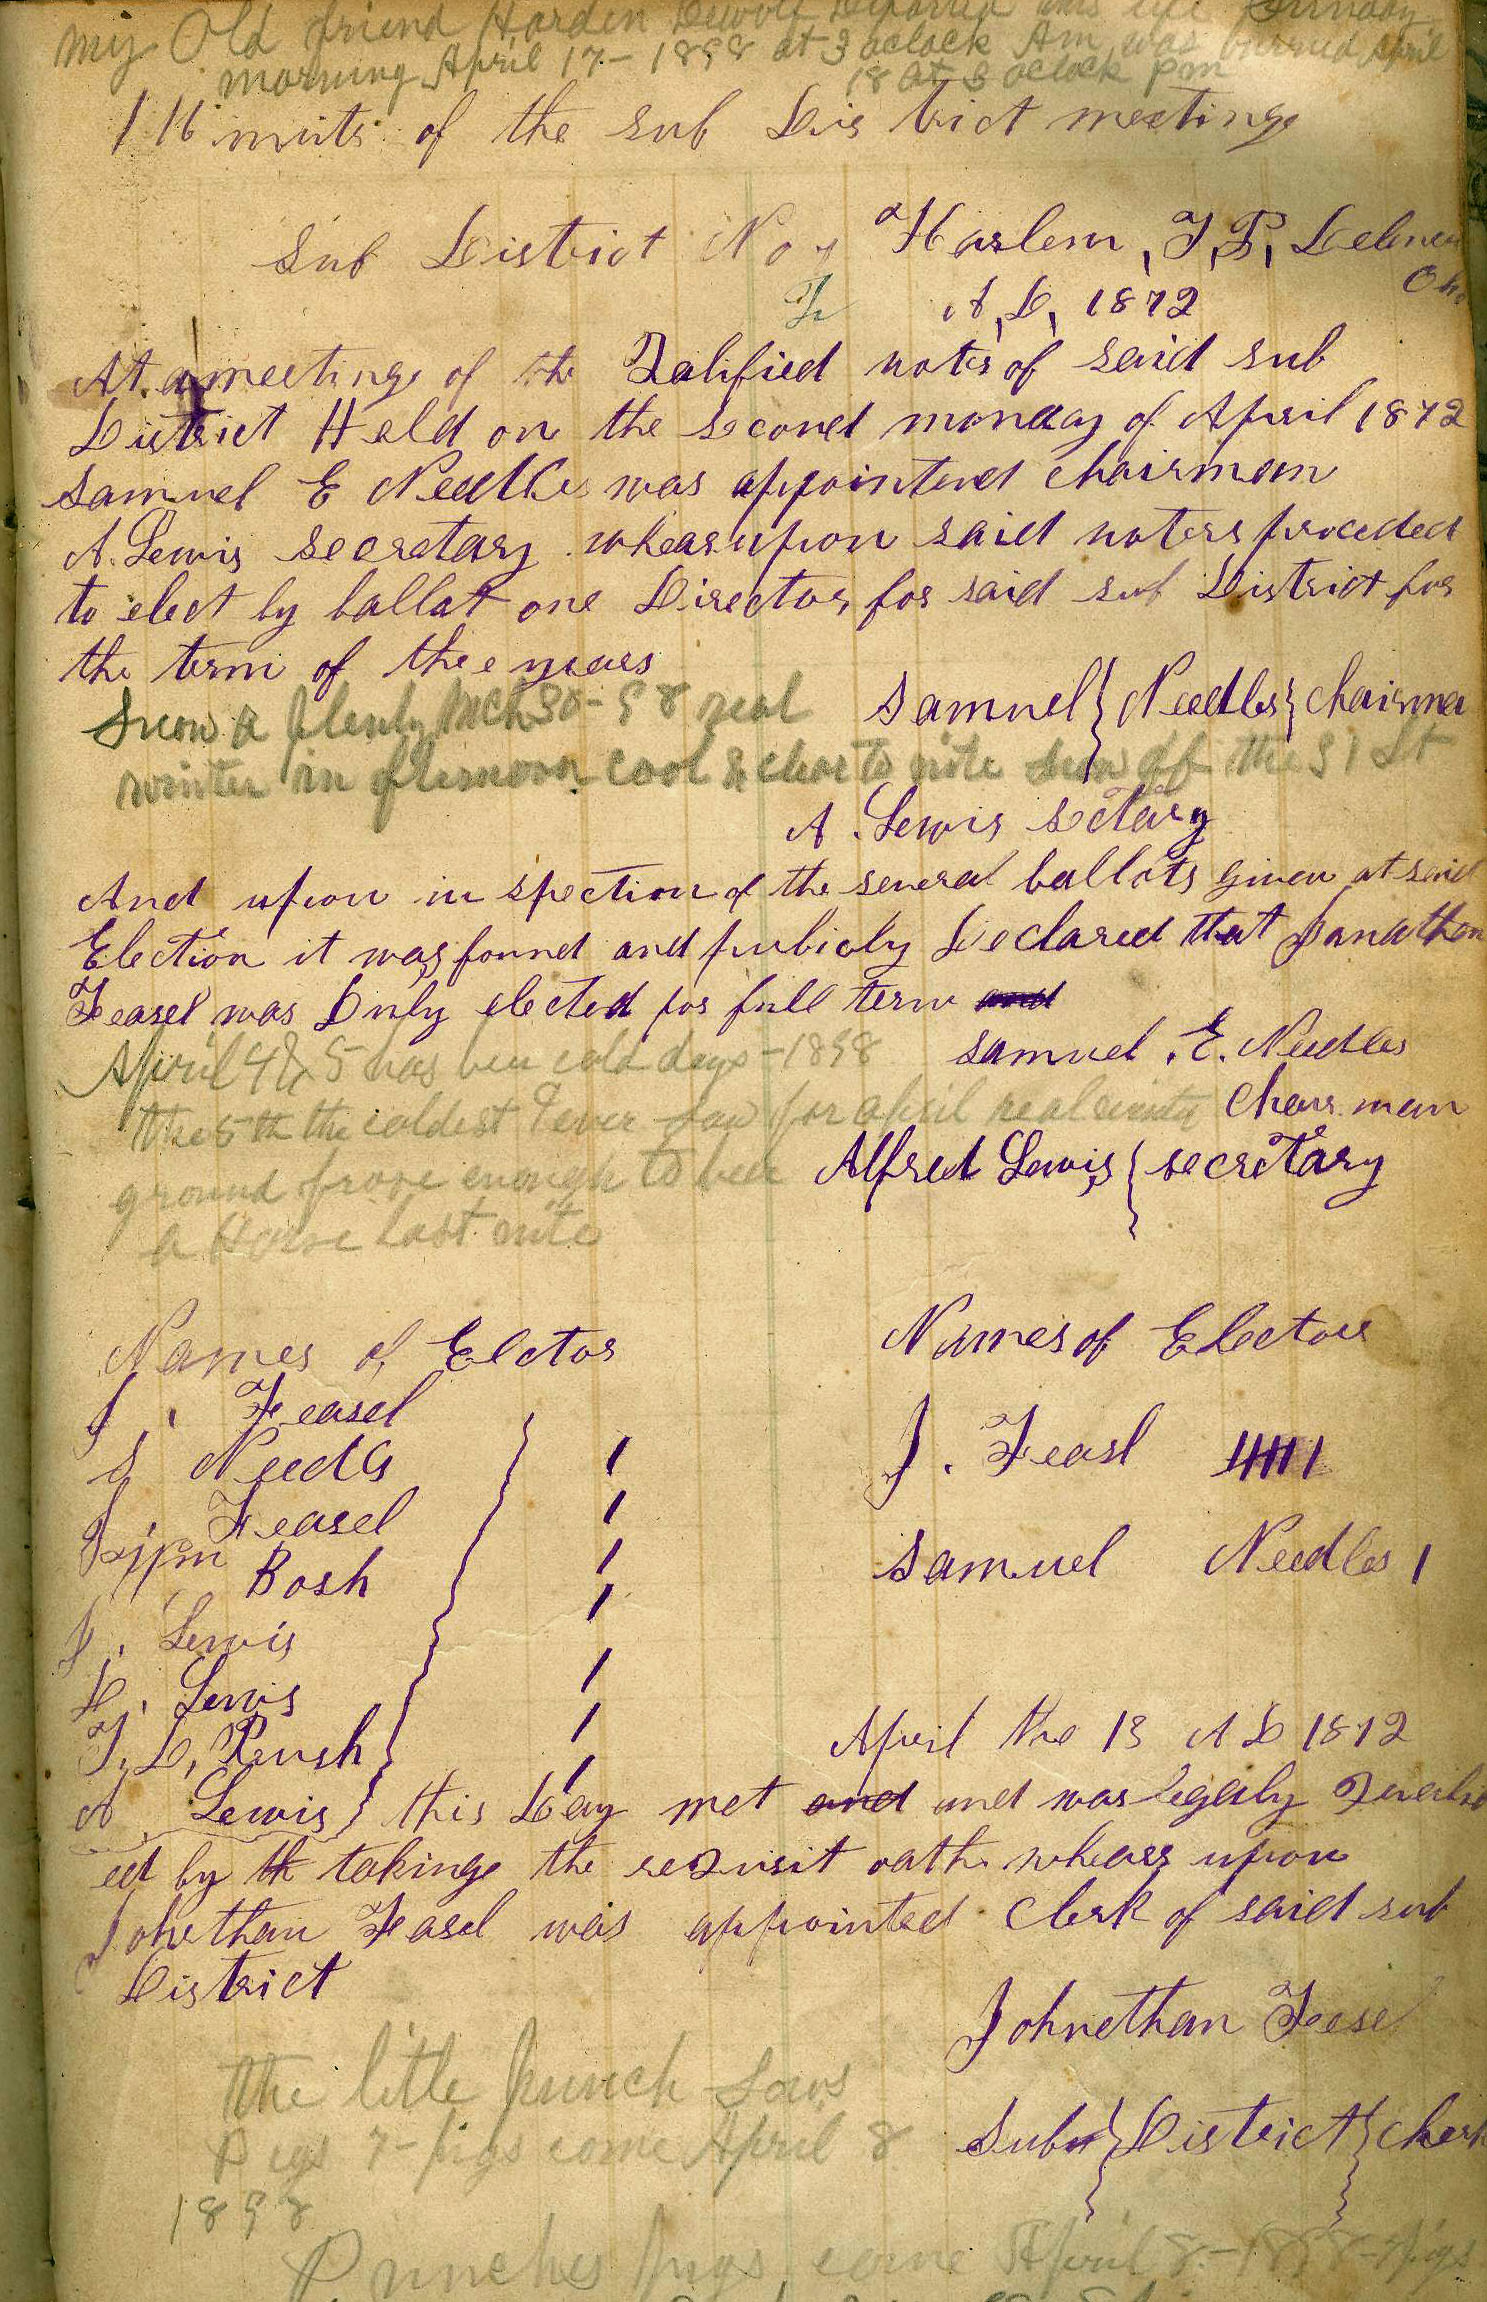 my Old friend Harden Dewolf Departed this life Sunday
morning April 17 - 1898 at 3 oclock Am was burried April
18 at 3 oclock pm
116 miuts of the Sub District meetinge
Sub District No 7 Harlem, T, P, Delewa
Ohi
A, D, 1872
At a meetinge of the Qalified voters of said sub
District Held on the second monday of April 1872
Samuel E Needles was appointend chairman
A. Lewis secretary whearupon said voters proceded
to elect by ballat one Director for said sub District for
the term of thee years
Snow a plenty Mch 30 - 98 real
Samuel } Needles } chairma
winter in afternoon cool & clear to nite snow off the 31 st
A. Lewis sctary
And upon in spection of the several ballots given at said
Election it was found and publicly Declared that Janathan
Feasel was Duly elected for full term and
April 4 & 5 has ben cold days - 1898
Samuel . E. Needles
the 5th the coldest I ever saw for april real winter
Chair man
ground froze enough to bear
Alfred Lewis { secretary
a Horse last nite
Names of Elctor
Names of Electors
J. Feasel
S Needls
J. Feasel
J. Feasl 1111
Bosh
Samuel Needles 1
J. Lewis
H. Lewis
T. D, Rush
April the 13 A D 1872
A Lewis } this Day met and and was legaly Qualifi
ed by th takinge the reQuisit oath whearupon
Johethan Feasel was appointed Clerk of said sub
District
Johnethan Feesel
the little punch Sows
Sub } District } clerk
Pigs come April 8
1898
Punches pigs come April 8 - 1898 - pigs